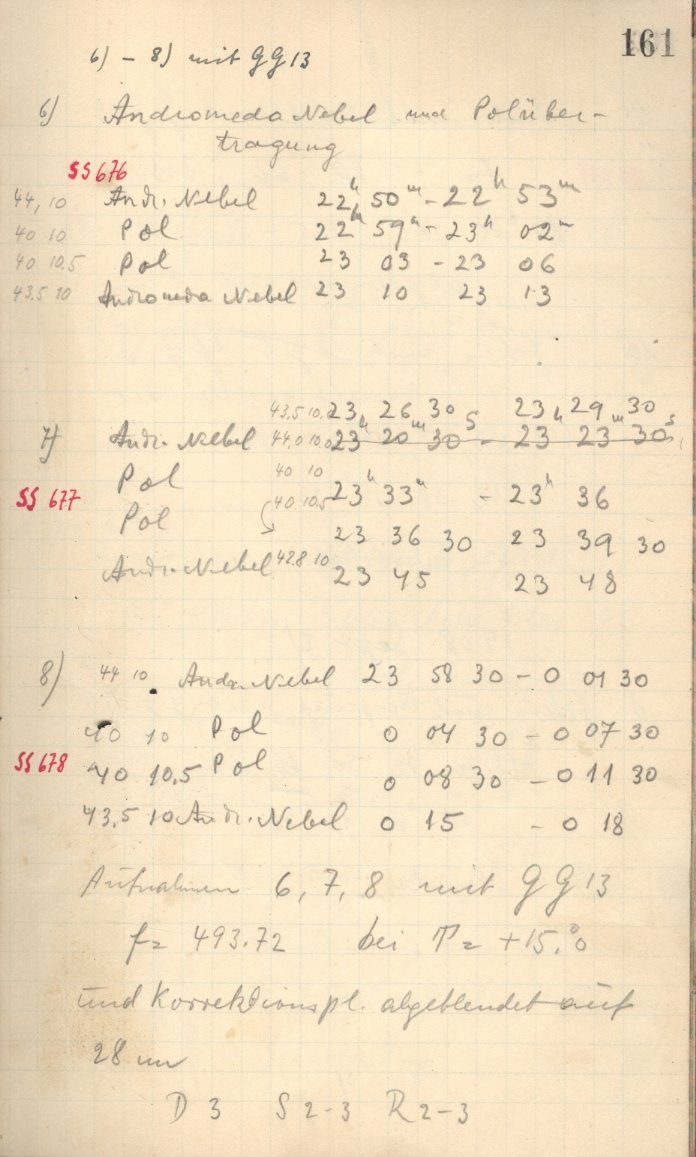 161
6) – 8) mit GG13
6) Andromeda Nebel und Polüber-
tragung
SS 676
44,10 Andr. Nebel 22h 50m – 22h 53m
40 10 Pol 22h 59m – 23h 02m
40 10,5 Pol 23 03 – 23 06
43,5 10 Andromeda Nebel 23 10 23 13
43,5 10,2 23h 26m 30s 23h 29m 30
7) Andr. Nebel 44,0 10,0 23 20 30 – 23 23 30s
Pol 40 10
SS 677 40 10,5 23h 33m – 23h 36
Pol 23 36 30 23 39 30
Andr. Nebel 42,8 10 23 45 23 48
8) 44 10 Andr. Nebel 23 58 30 – 0 01 30
40 10 Pol 0 04 30 – 0 07 30
SS 678 40 10,5 Pol 0 08 30 – 0 11 30
43,5 10 Andr. Nebel 0 15 – 0 18
Aufnahmen 6, 7, 8 mit GG13
f = 493.72 bei T = +15.°0
und Korrektionspl. abgeblendet auf
28 cm
D 3 S 2–3 R 2–3